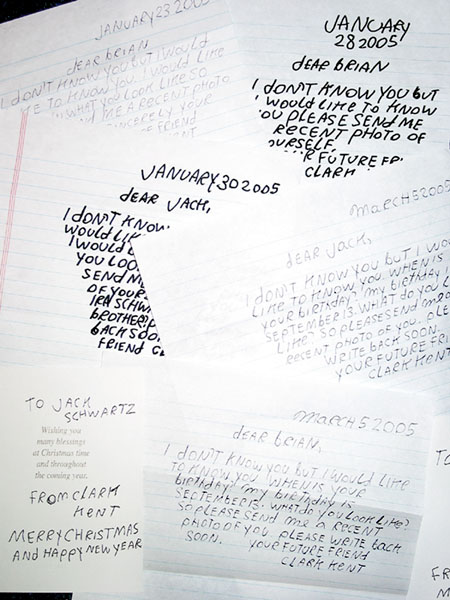 JANUARY 23 2005
DEAR BRIAN
I DON'T KNOW YOU BUT I WOULD
TO KNOW YOU. I WOULD
WHAT YOU LOOK LIKE SO
SEND ME A RECENT PHOTO
SINCERELY YOUR
FRIEND
JANUARY
28 2005
DEAR BRIAN
I DON'T KNOW YOU BUT
WOULD LIKE TO KNOW
YOU PLEASE SEND ME
RECENT PHOTO OF
FUTURE
CLARK
JANUARY 30 2005
DEAR JACK,
I DON'T KNOW
WOULD
I WOULD
YOU
SEND
OF YOUR
BACK SOON
FRIEND
MARCH 5 2005
DEAR JACK,
I DON'T KNOW YOU BUT I
LIKE TO KNOW YOU. WHEN IS
YOUR BIRTHDAY? MY BIRTHDAY
SEPTEMBER 13. WHAT DO YOU
LIKE? SO PLEASE SEND ME
RECENT PHOTO OF YOU.
WRITE BACK SOON.
YOUR FUTURE
CLARK KENT
TO JACK
SCHWARTZ
Wishing you
many blessings
at Christmas time
and throughout
the coming year.
FROM CLARK
KENT
MERRY CHRISTMAS
AND HAPPY NEW YEAR
MARCH 5 2005
DEAR BRIAN,
I DON'T KNOW YOU BUT I WOULD LIKE
TO KNOW YOU WHEN IS YOUR
BIRTHDAY? MY BIRTHDAY IS
SEPTEMBER 13. WHAT DO YOU LOOK LIKE?
SO PLEASE SEND ME A RECENT
PHOTO OF YOU PLEASE WRITE BACK
SOON. YOUR FUTURE FRIEND
CLARK KENT